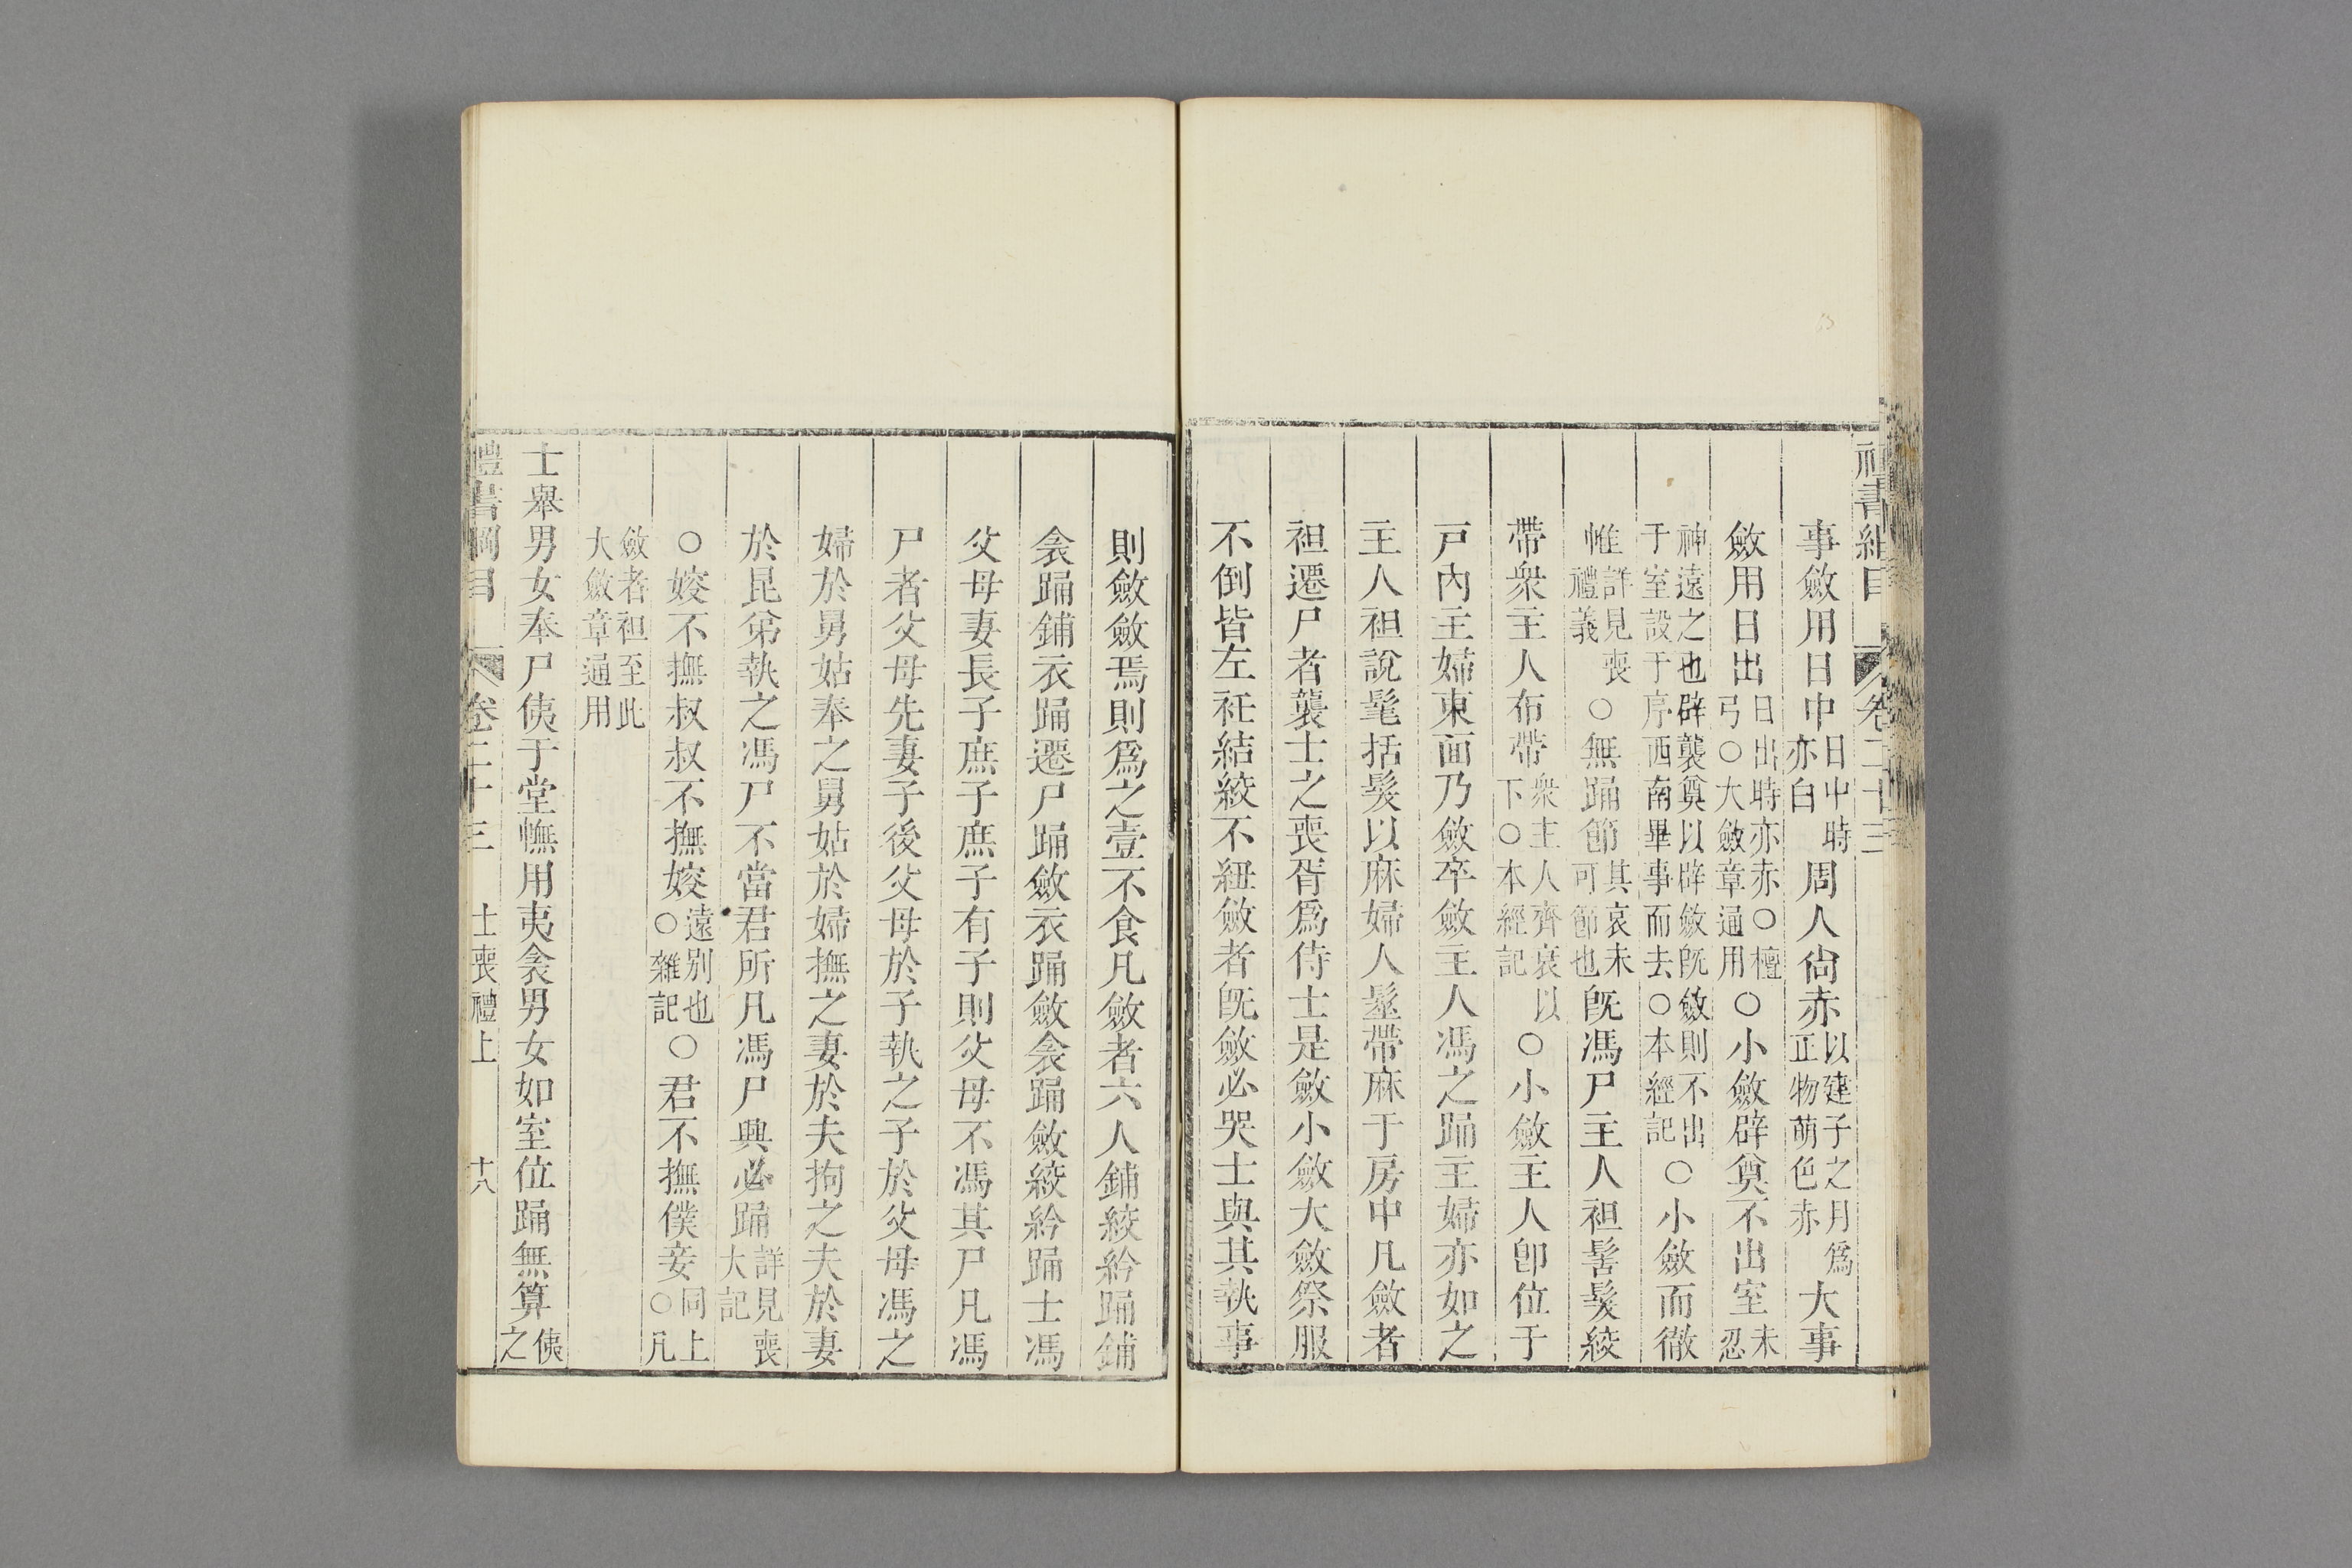 禮書綱目 卷二十三
事斂用日中日中時亦白周人尙赤以建子之月爲正物萌色赤大事
斂用日出日出時亦赤○檀弓○大斂章通用○小斂辟奠不出室未忍
神遠之也辟襲奠以辟斂旣斂則不出于室設于序西南畢事而去○本經記○小斂而徹
帷詳見喪禮義○無踊節其哀未可節也旣馮尸主人袒髻髮絞
帶衆主人布帶衆主人齊衰以下○本經記○小斂主人卽位于
戸內主婦東面乃斂卒斂主人馮之踊主婦亦如之
主人袒說髦括髮以麻婦人髽帶麻于房中凡斂者
袒遷尸者襲士之喪胥爲侍士是斂小斂大斂祭服
不倒皆左衽結絞不紐斂者旣斂必哭士與其執事
則斂斂焉則爲之壹不食凡斂者六人鋪絞紟踊鋪
衾踊鋪衣踊遷尸踊斂衣踊斂衾踊斂絞紟踊士馮
父母妻長子庶子庶子有子則父母不馮其尸凡馮
尸者父母先妻子後父母於子執之子於父母馮之
婦於舅姑奉之舅姑於婦撫之妻於夫拘之夫於妻
於昆弟執之馮尸不當君所凡馮尸興必踊詳見喪大記
○嫂不撫叔叔不撫嫂遠别也○雜記○君不撫僕妾同上○凡
斂者袒至此大斂章通用
士舉男女奉尸侇于堂幠用夷衾男女如室位踊無算侇之
禮書綱目 卷二十三 士喪禮上 十八